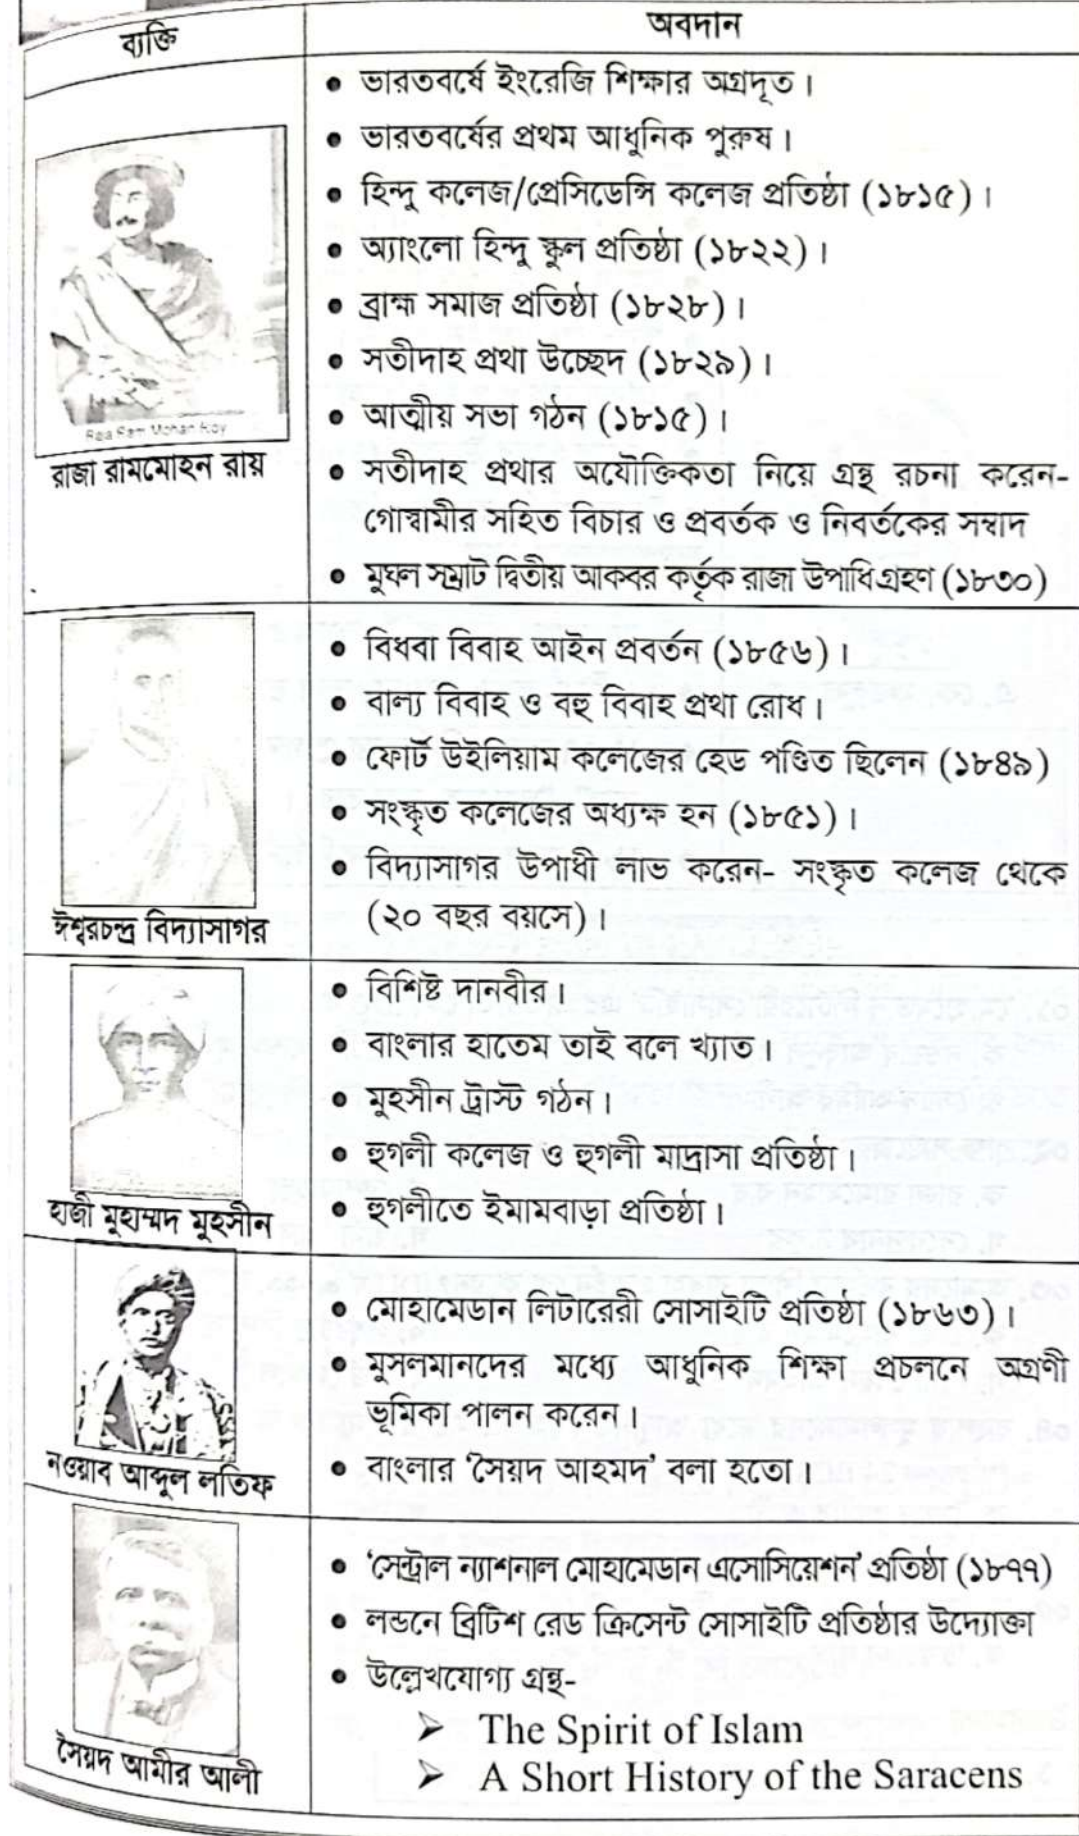 ব্যক্তি
অবদান
• ভারতবর্ষে ইংরেজি শিক্ষার অগ্রদূত।
• ভারতবর্ষের প্রথম আধুনিক পুরুষ।
• হিন্দু কলেজ/প্রেসিডেন্সি কলেজ প্রতিষ্ঠা (১৮১৫)।
• অ্যাংলো হিন্দু স্কুল প্রতিষ্ঠা (১৮২২)।
• ব্রাহ্ম সমাজ প্রতিষ্ঠা (১৮২৮)।
• সতীদাহ প্রথা উচ্ছেদ (১৮২৯)।
• আত্মীয় সভা গঠন (১৮১৫)।
Raja Ram Mohan Roy
রাজা রামমোহন রায়
• সতীদাহ প্রথার অযৌক্তিকতা নিয়ে গ্রন্থ রচনা করেন-
গোস্বামীর সহিত বিচার ও প্রবর্তক ও নিবর্তকের সম্বাদ
• মুঘল সম্রাট দ্বিতীয় আকবর কর্তৃক রাজা উপাধি গ্রহণ (১৮৩০)
• বিধবা বিবাহ আইন প্রবর্তন (১৮৫৬)।
• বাল্য বিবাহ ও বহু বিবাহ প্রথা রোধ।
• ফোর্ট উইলিয়াম কলেজের হেড পণ্ডিত ছিলেন (১৮৪৯)
• সংস্কৃত কলেজের অধ্যক্ষ হন (১৮৫১)।
• বিদ্যাসাগর উপাধী লাভ করেন- সংস্কৃত কলেজ থেকে
(২০ বছর বয়সে)।
ঈশ্বরচন্দ্র বিদ্যাসাগর
• বিশিষ্ট দানবীর।
• বাংলার হাতেম তাই বলে খ্যাত।
• মুহসীন ট্রাস্ট গঠন।
• হুগলী কলেজ ও হুগলী মাদ্রাসা প্রতিষ্ঠা।
• হুগলীতে ইমামবাড়া প্রতিষ্ঠা।
হাজী মুহাম্মদ মুহসীন
• মোহামেডান লিটারেরী সোসাইটি প্রতিষ্ঠা (১৮৬৩)।
• মুসলমানদের মধ্যে আধুনিক শিক্ষা প্রচলনে অগ্রণী
ভূমিকা পালন করেন।
• বাংলার ‘সৈয়দ আহমদ’ বলা হতো।
নওয়াব আব্দুল লতিফ
• ‘সেন্ট্রাল ন্যাশনাল মোহামেডান এসোসিয়েশন’ প্রতিষ্ঠা (১৮৭৭)
• লন্ডনে ব্রিটিশ রেড ক্রিসেন্ট সোসাইটি প্রতিষ্ঠার উদ্যোক্তা
• উল্লেখযোগ্য গ্রন্থ-
➢ The Spirit of Islam
➢ A Short History of the Saracens
সৈয়দ আমীর আলী